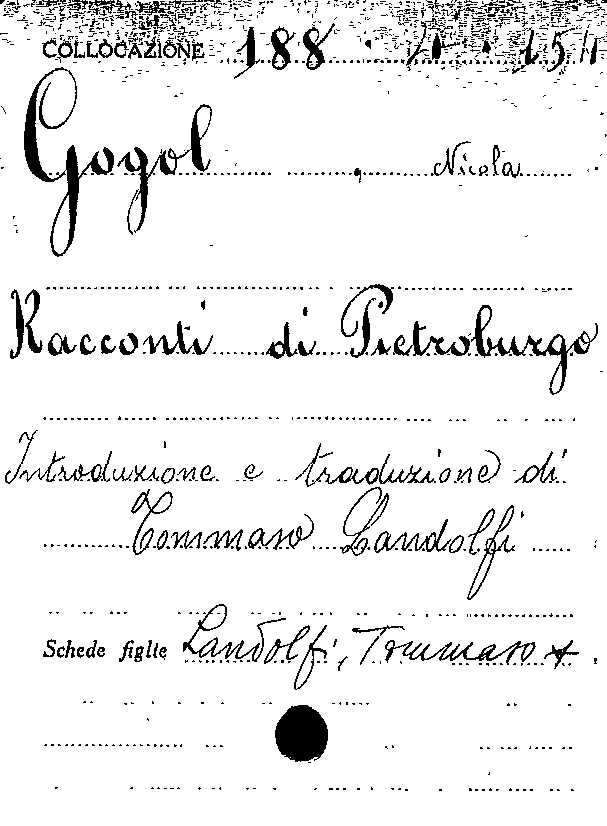 COLLOCAZIONE 188
Gogol , Nicola
Racconti di Pietroburgo
Introduzione e traduzione di
Tommaso Landolfi
Schede figlie Landolfi, Tommaso +